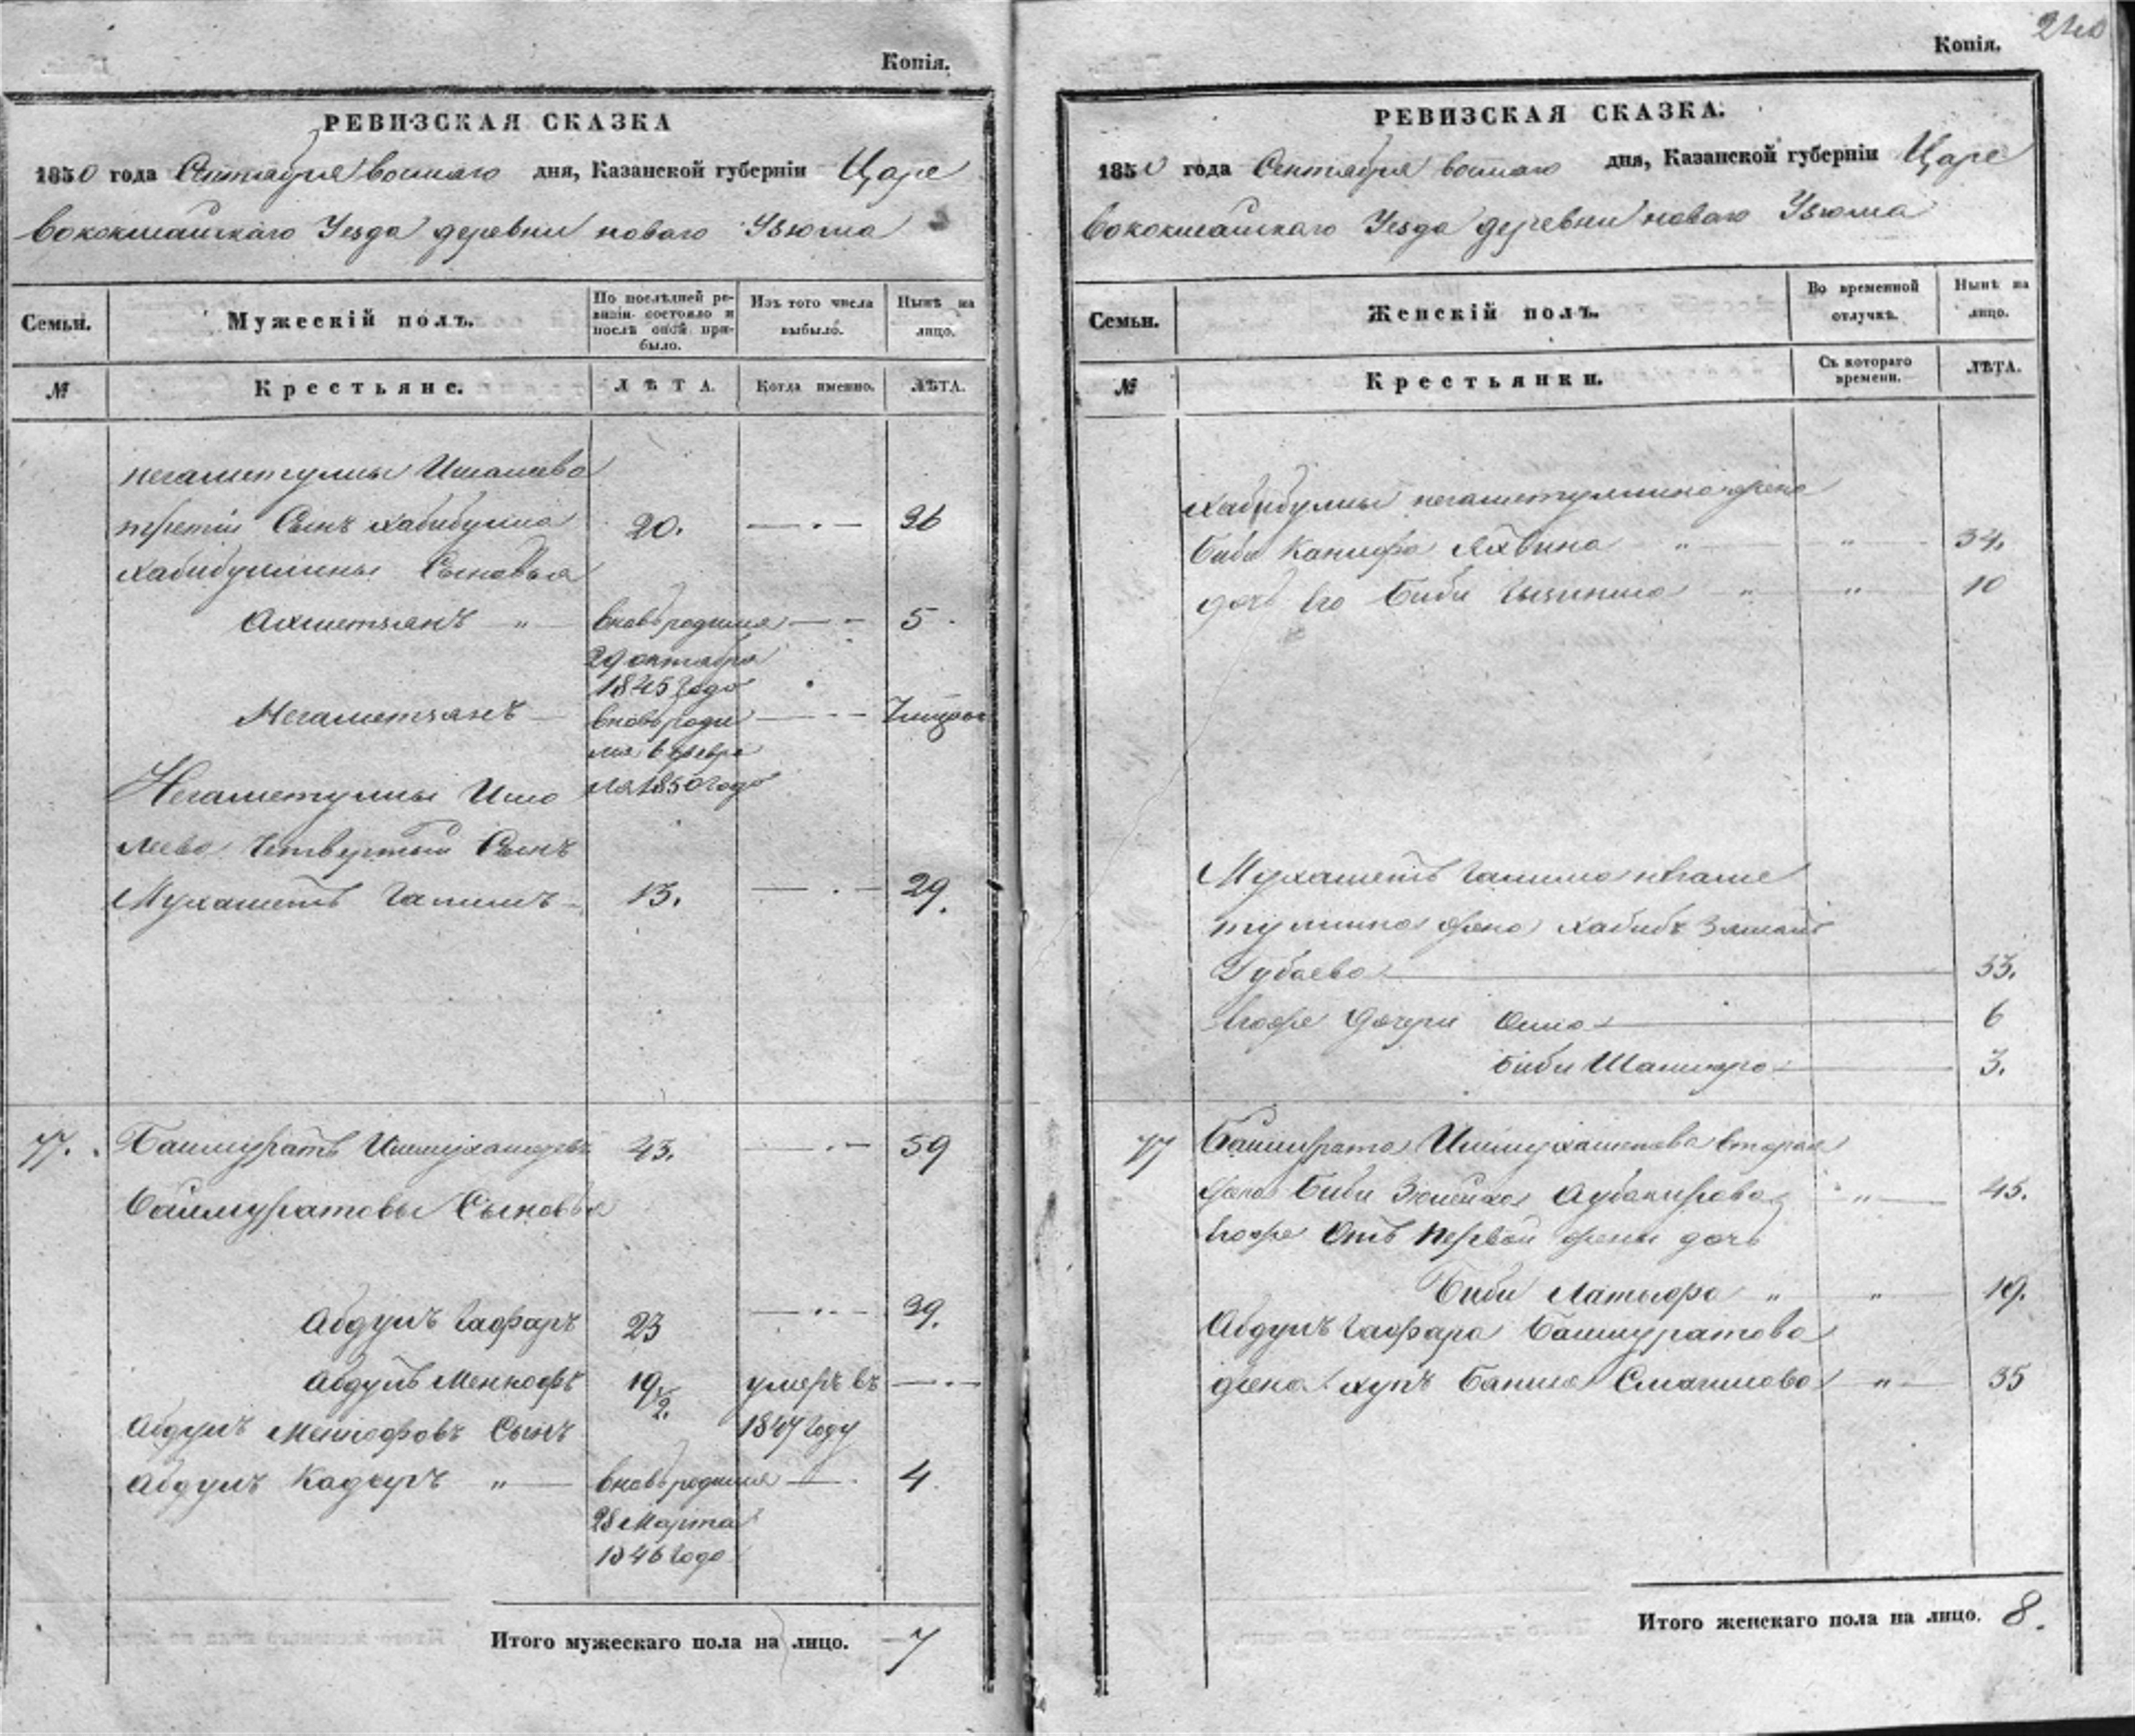 Копія.
РЕВИЗСКАЯ СКАЗКА
1850 года Сентября восмаго дня, Казанской губерніи Царе
вококшайскаго Уезда деревни новаго Узюма
Семьи.
Мужескій полъ.
По послѣдней ре-
визіи состояло и
послѣ оной при-
было.
Изъ того числа
выбыло.
Нынѣ на
лицо.
№
Крестьяне.
ЛѢТА.
Когда именно.
ЛѢТА.
негаметуллы Ишалева
третій Сынъ хабибулла 20. — 36
хабибуллины Сыновья
Ахметзянъ " вновьродился — 5
29 октября
1845 года
Негаметзянъ вновьроди —
лся в февра
ля 1850 года
Негаметуллы Ишa
леева четвертый Сынъ
Мухаметъ Галимъ 13. — 29.
77. Баймуратъ Ишмухаметевъ 43. — 59
баймуратовы Сыновья
Абдулъ Гафаръ 23 — 39.
Абдулъ Меннофъ 19 1/2. умеръ въ —
1847 году
Абдулъ Меннофовъ Сынъ
Абдулъ Кадыръ " вновьродился — 4
28 Марта
1846 года
Итого мужескаго пола на лицо. 7
240
Копія.
РЕВИЗСКАЯ СКАЗКА.
1850 года Сентября восмаго дня, Казанской губерніи Царе
вококшайскаго Уезда деревни новаго Узюма
Семьи.
Женскій полъ.
Во временной
отлучкѣ.
Нынѣ на
лицо.
№
Крестьянки.
Съ котораго
времени.
ЛѢТА.
хабибуллы негаметуллина жена
Биби Канифа " " 34.
дочь Его Биби " " 10
Мухаметъ Галима негаме
туллина жена хабибъ
Губаева 33.
Егоже дочери 6
Биби 3.
77 Баймурата Ишмухаметова вторая
жена Биби Аубакирова " 45.
Егоже отъ первой жены дочь
Биби Латыфа " " 19.
Абдулъ Гафара Баймуратова
жена " 35
Итого женскаго пола на лицо. 8.